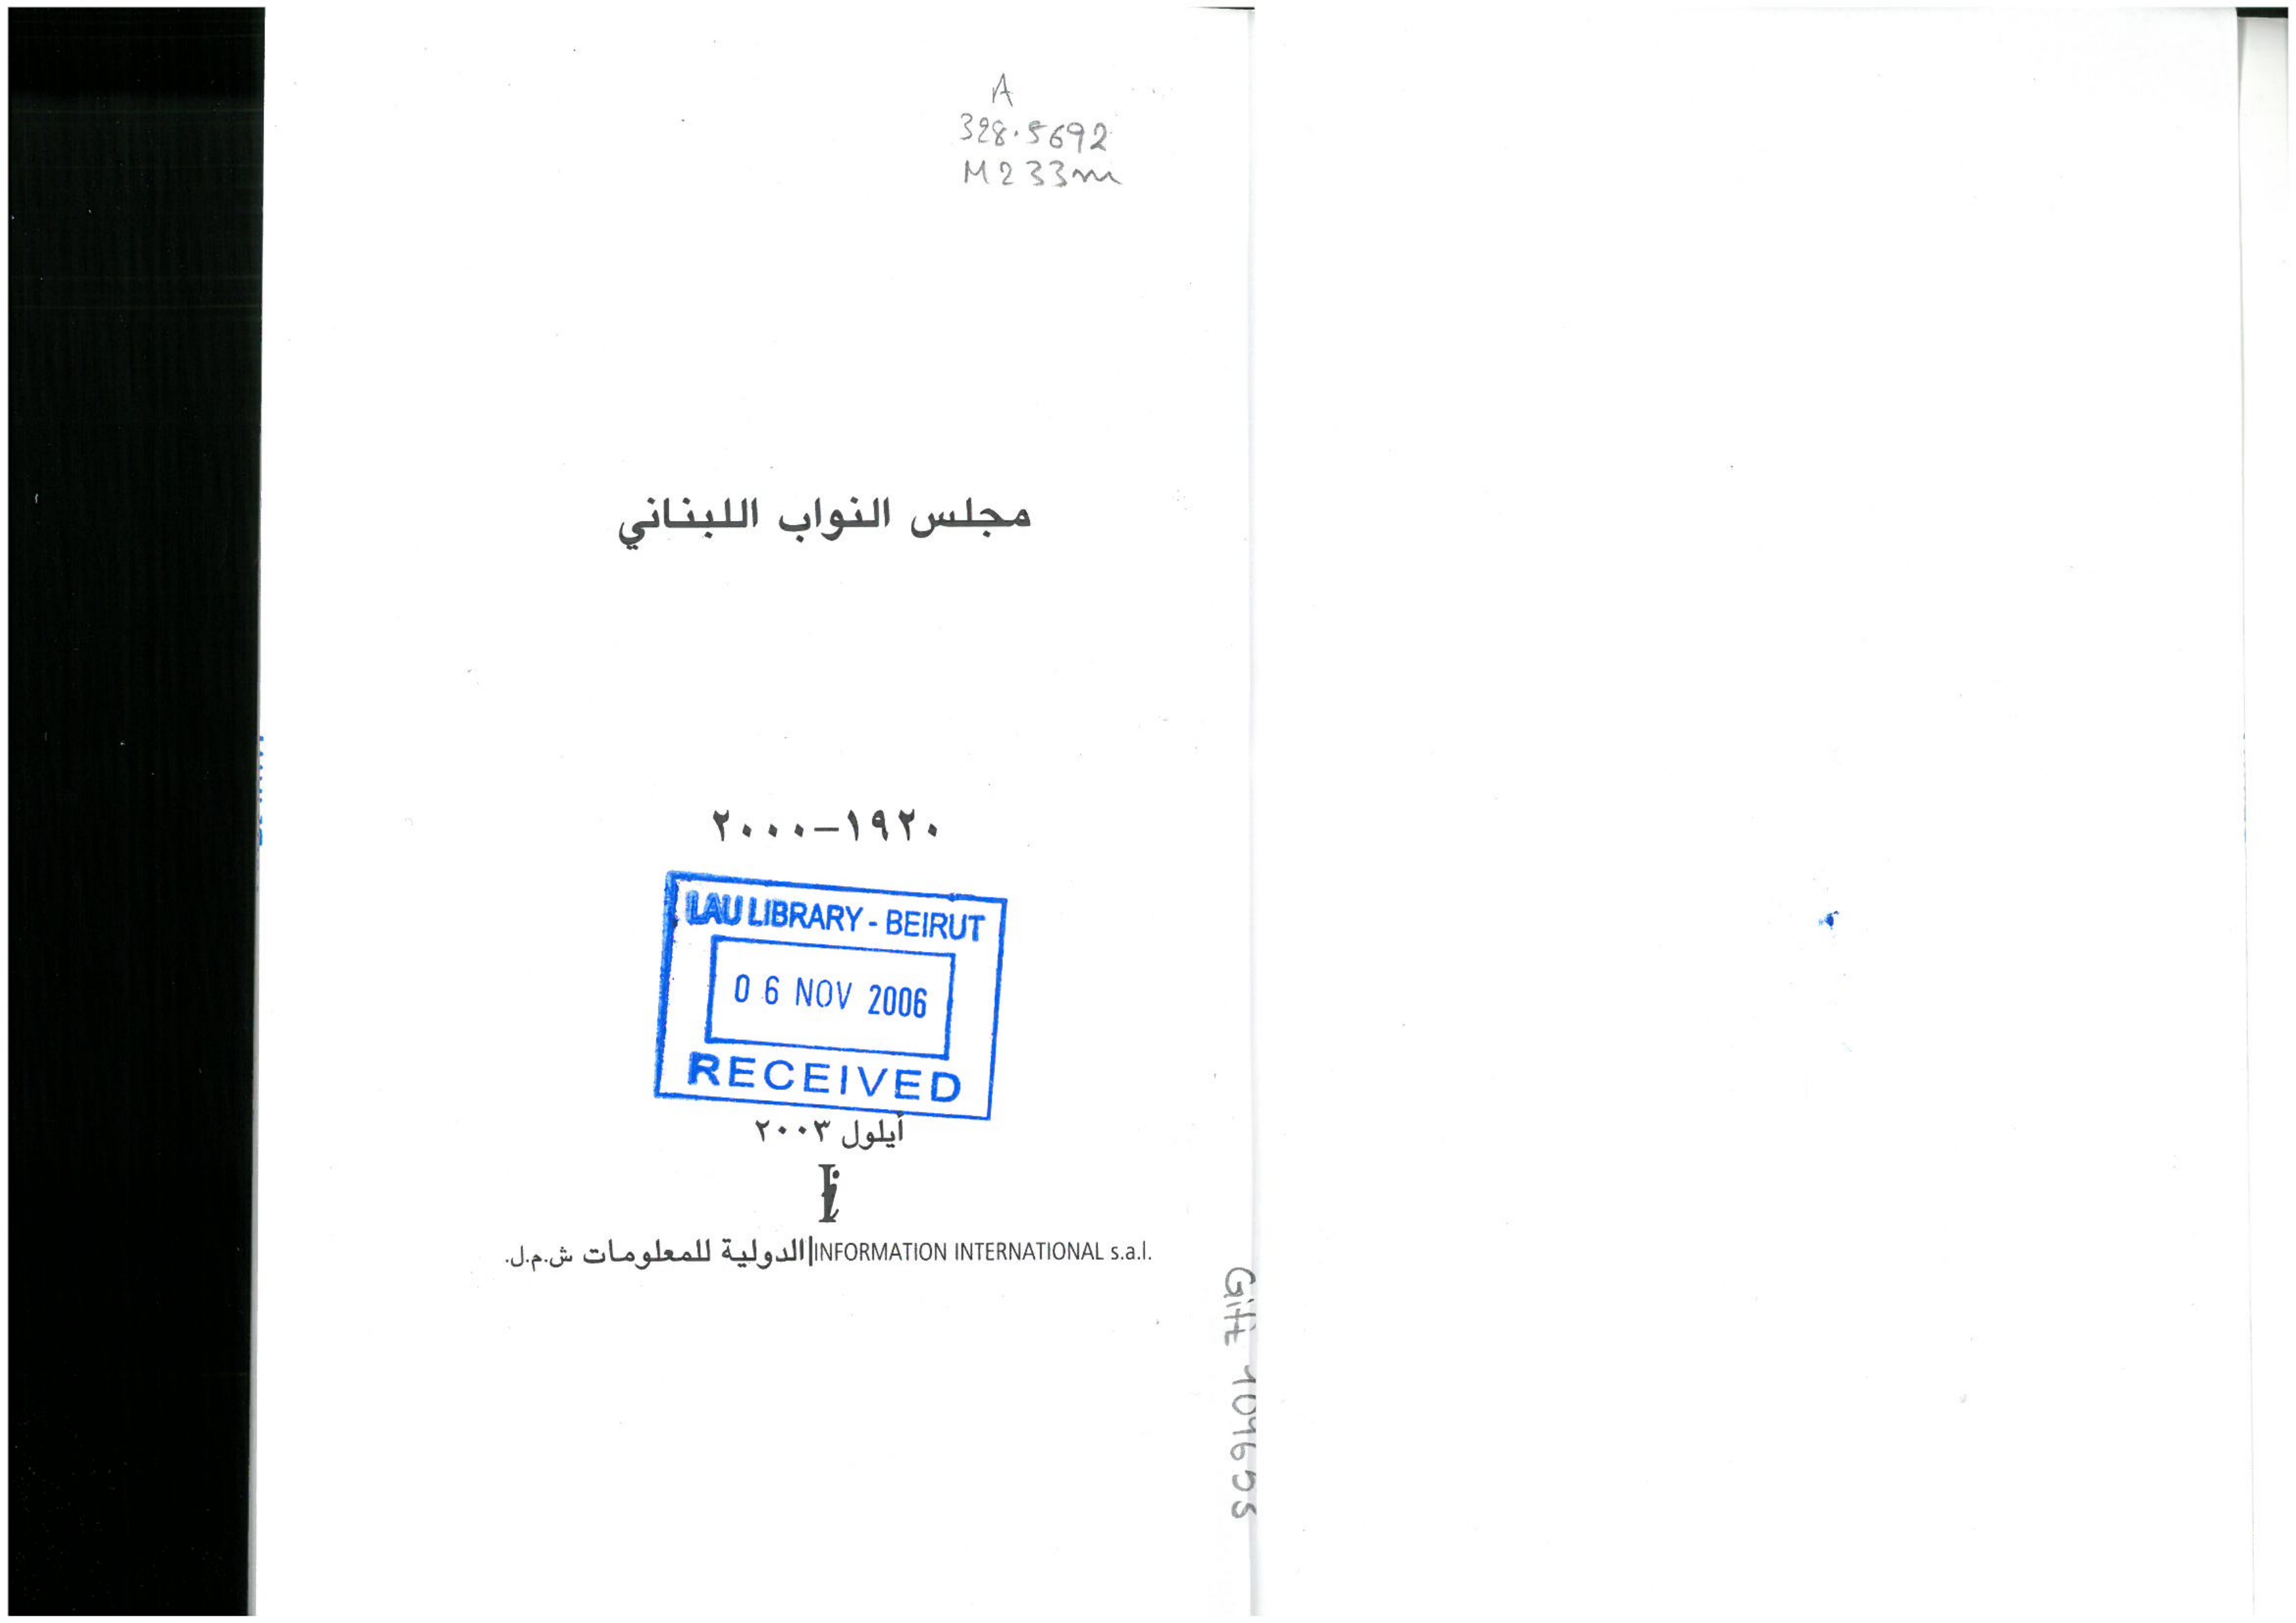 A
328.5692
M233m
مجلس النواب اللبناني
١٩٢٠-٢٠٠٠
LAU LIBRARY - BEIRUT
06 NOV 2006
RECEIVED
أيلول ٢٠٠٣
الدولية للمعلومات ش.م.ل.|INFORMATION INTERNATIONAL s.a.l.
Gift